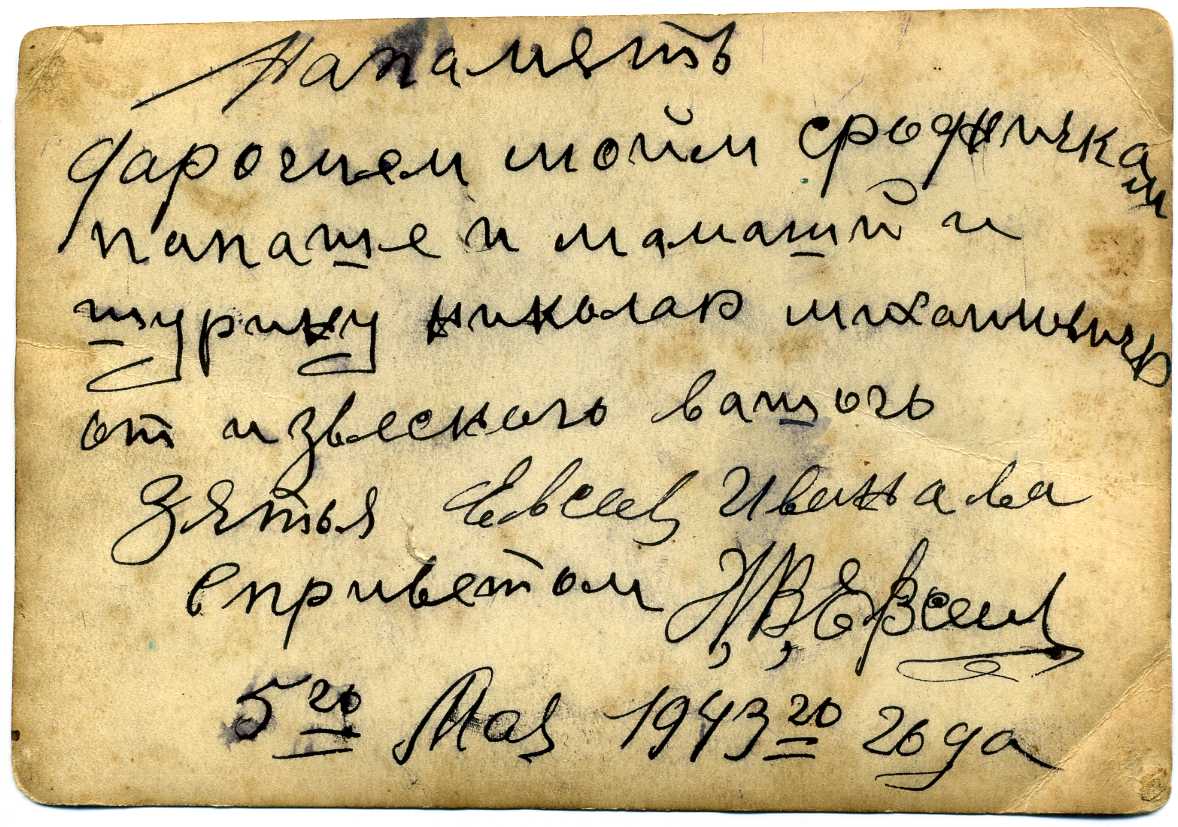 Напаметь
дарогием моййм сродничкам
папаше и мамаший и
шурину николаю михаиловичю
от извесного вашого
зятья Евсея Иванава
с приветом Н, В, Евсеи
5го Мая 1943го года